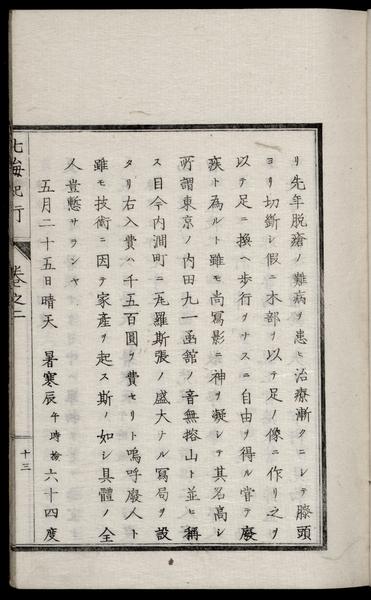 リ先年脱瘡ノ難病ヲ患ヒ治療漸クニシテ膝頭
ヨリ切斷シ假ニ木部ヲ以テ足ノ像ニ作リ之ヲ
以テ足ニ換ヘ歩行ヲナスニ自由ヲ得ル甞テ廢
疾ト為ルト雖モ尚寫影ニ神ヲ凝シテ其名高シ
所謂東京ノ内田九一函館ノ音無榕山ト並ヒ稱
ス目今内澗町ニ在羅斯張ノ盛大ナル寫局ヲ設
タリ右入費ハ千五百圓ヲ費セリト嗚呼廢人ト
雖モ技術ニ因テ家產ヲ起ス斯ノ如シ具體ノ全
人豈慙サランヤ
五月二十五日晴天 暑寒辰午時檢六十四度
北海紀行 卷之二 十三